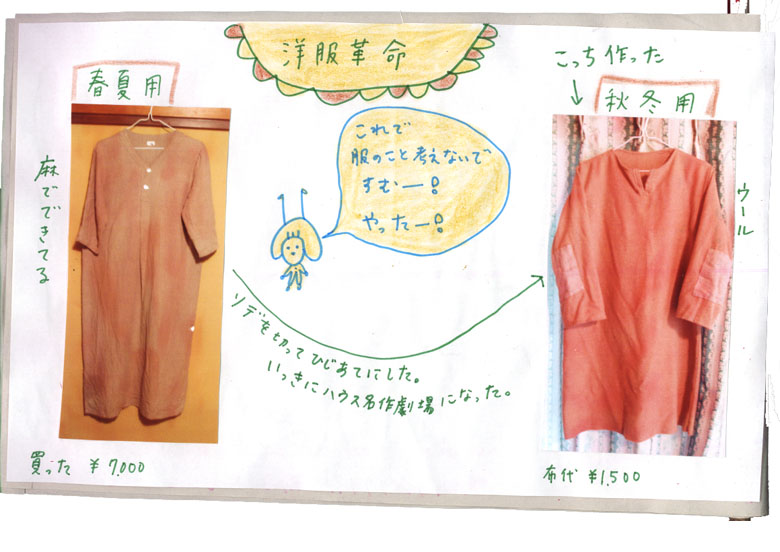 洋服革命
春夏用
麻でできてる
買った ¥7,000
これで
服のこと考えないで
すむー!
やったー!
ソデを切ってひじあてにした。
いっきにハウス名作劇場になった。
こっち作った
秋冬用
ウール
布代 ¥1,500